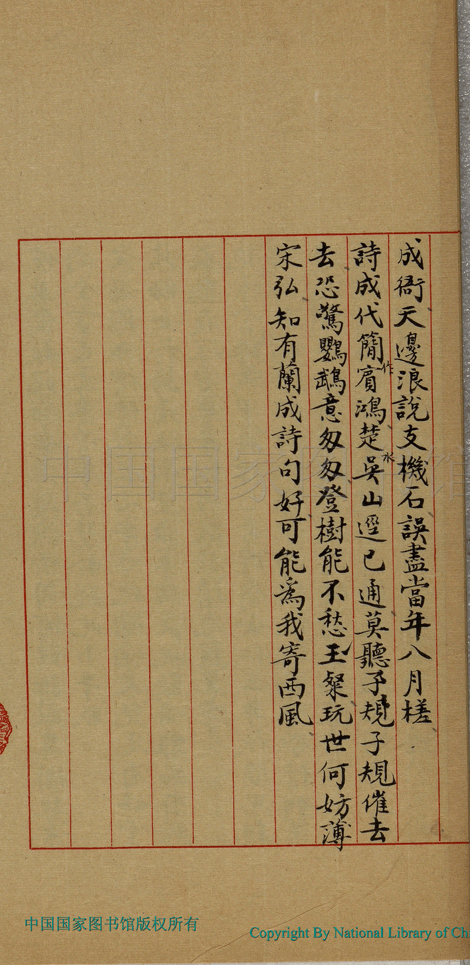 成衙天邊浪說支機石誤盡當年八月槎
詩成代簡賓鴻楚吳山逕已通莫聽子規子規催去
作
水
去恐驚鸚鵡意匆匆登樹能不愁王粲玩世何妨薄
宋弘知有蘭成詩句好可能為我寄西風
中国国家图书馆
中国国家图书馆版权所有
Copyright By National Library of Ch